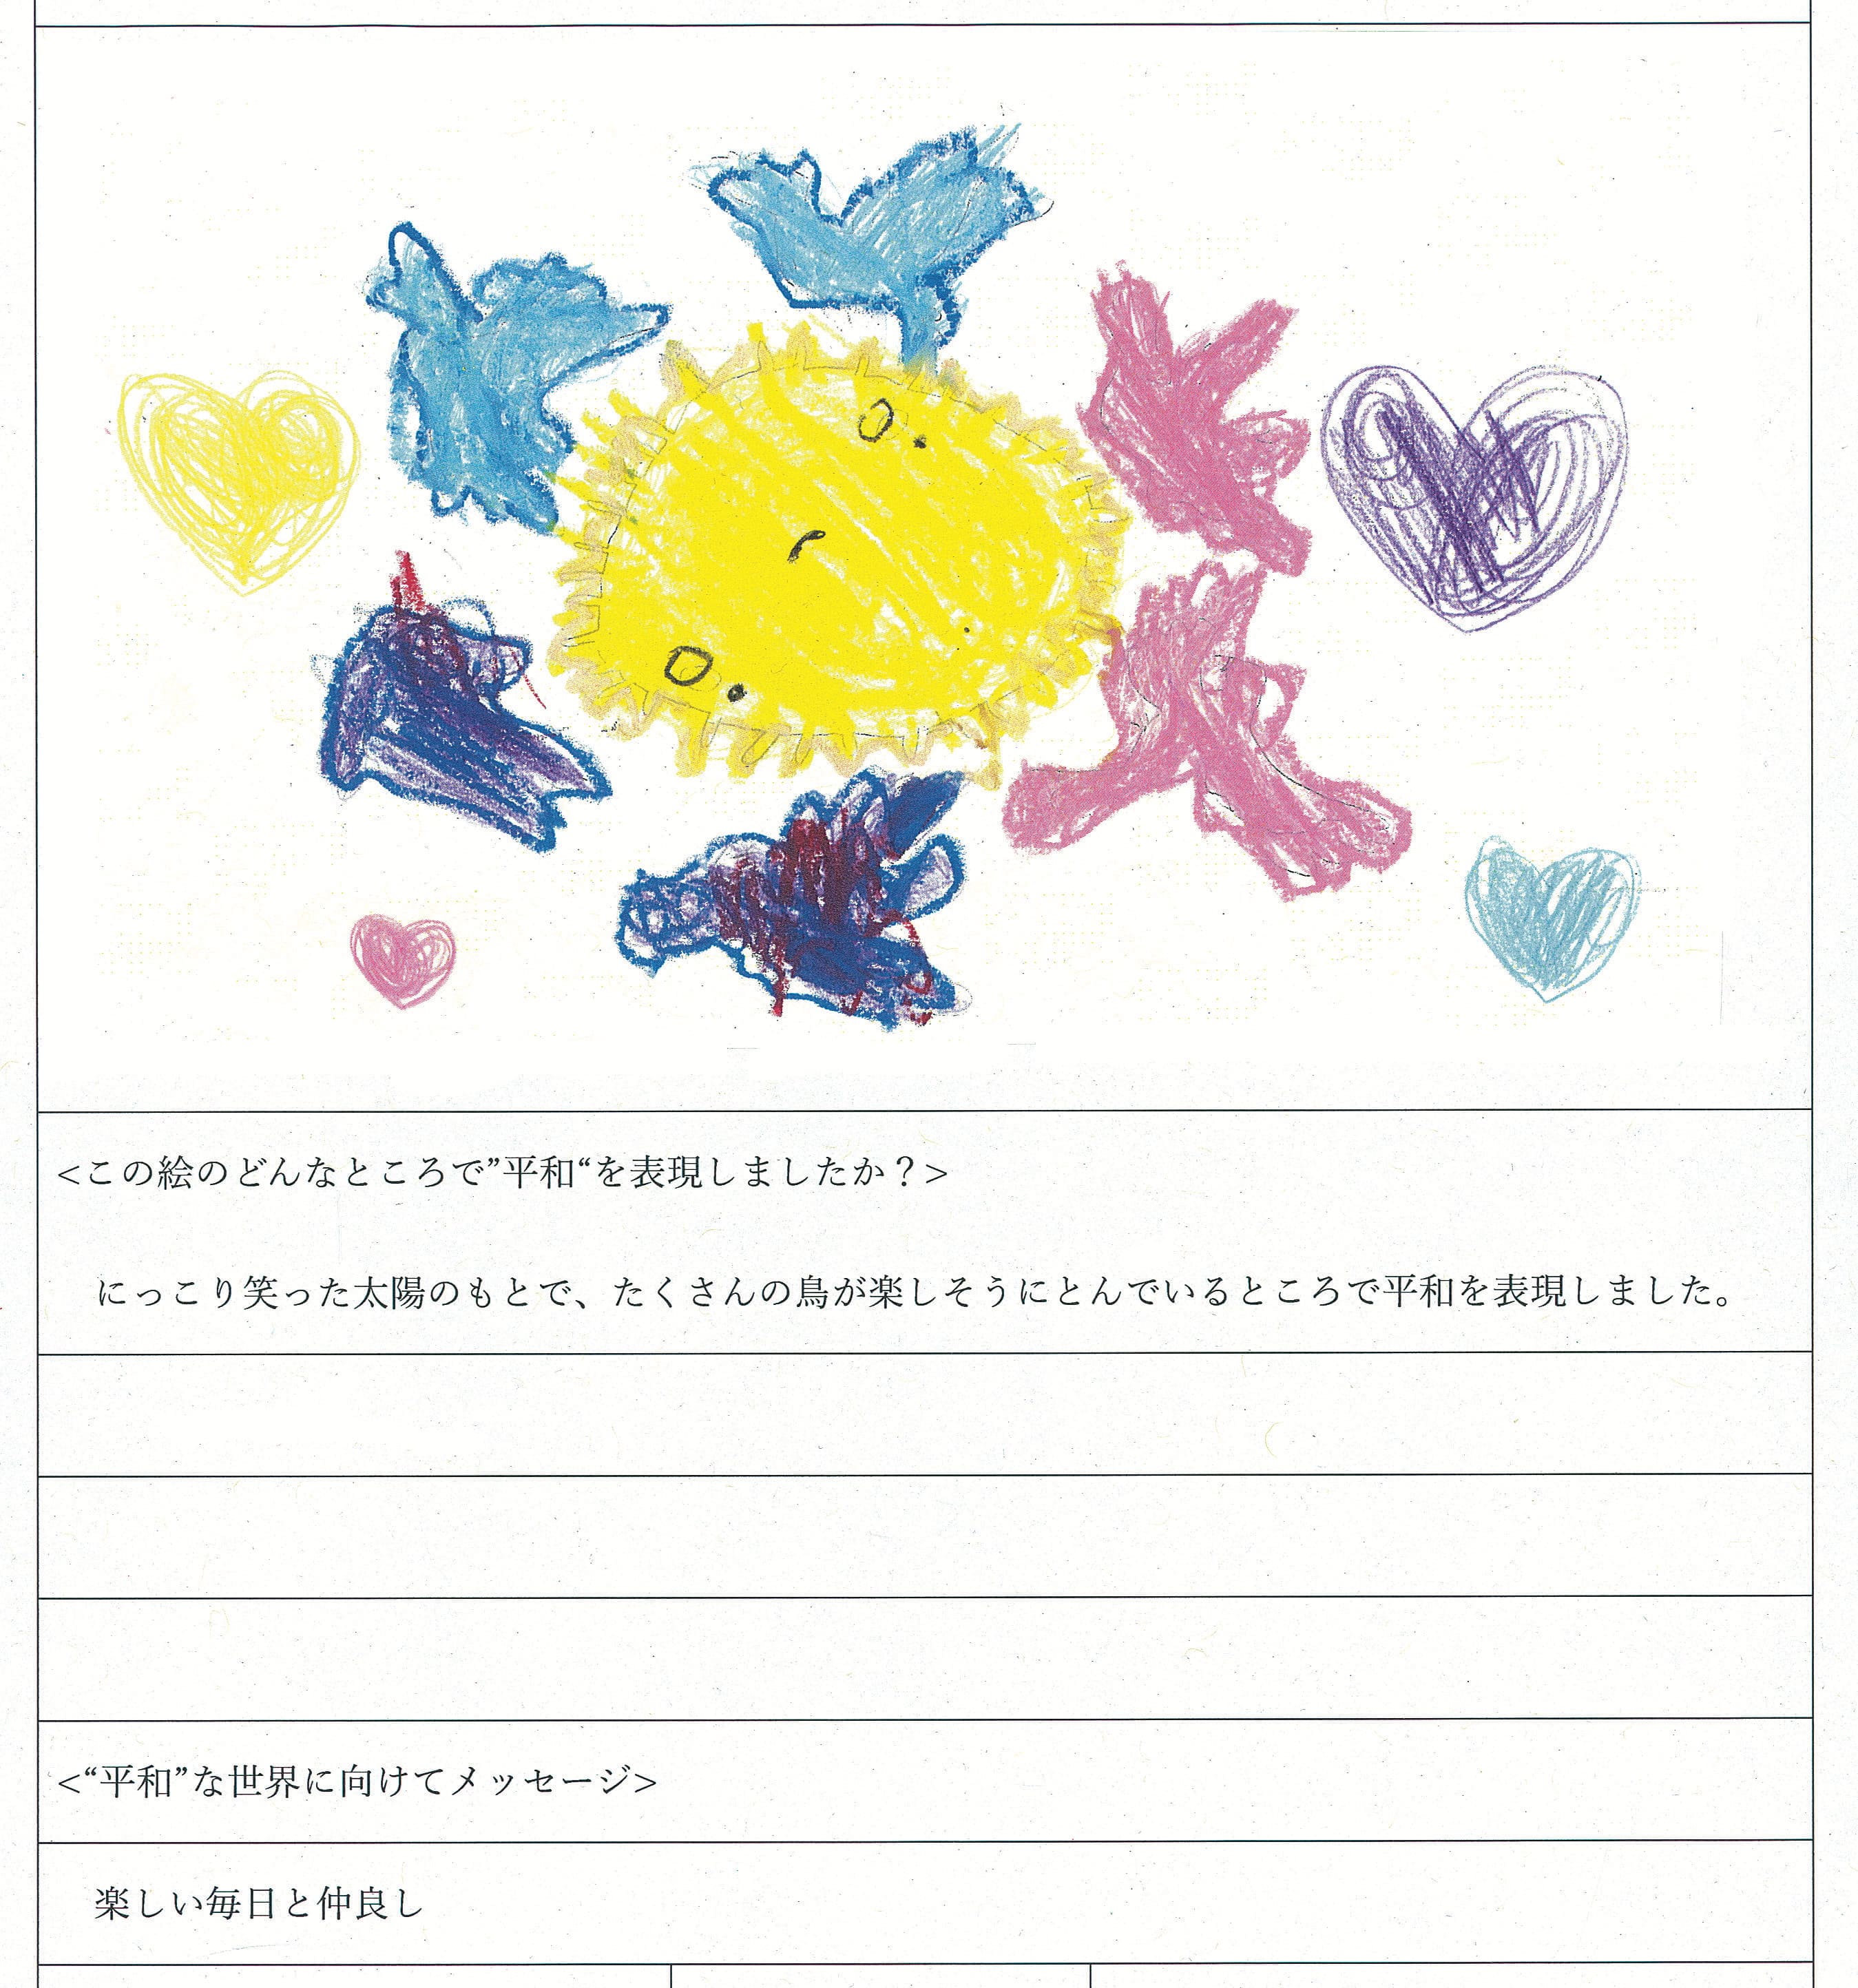 <この絵のどんなところで”平和“を表現しましたか？>
にっこり笑った太陽のもとで、たくさんの鳥が楽しそうにとんでいるところで平和を表現しました。
<“平和”な世界に向けてメッセージ>
楽しい毎日と仲良し